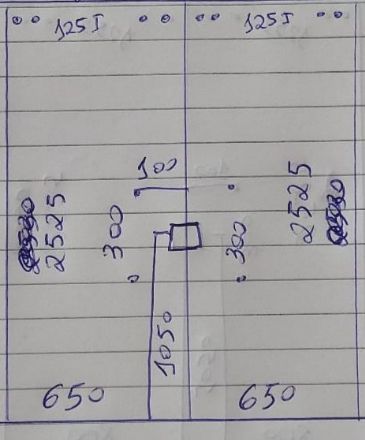 125I 125I
100
2525 300 300 2525
1050
650 650